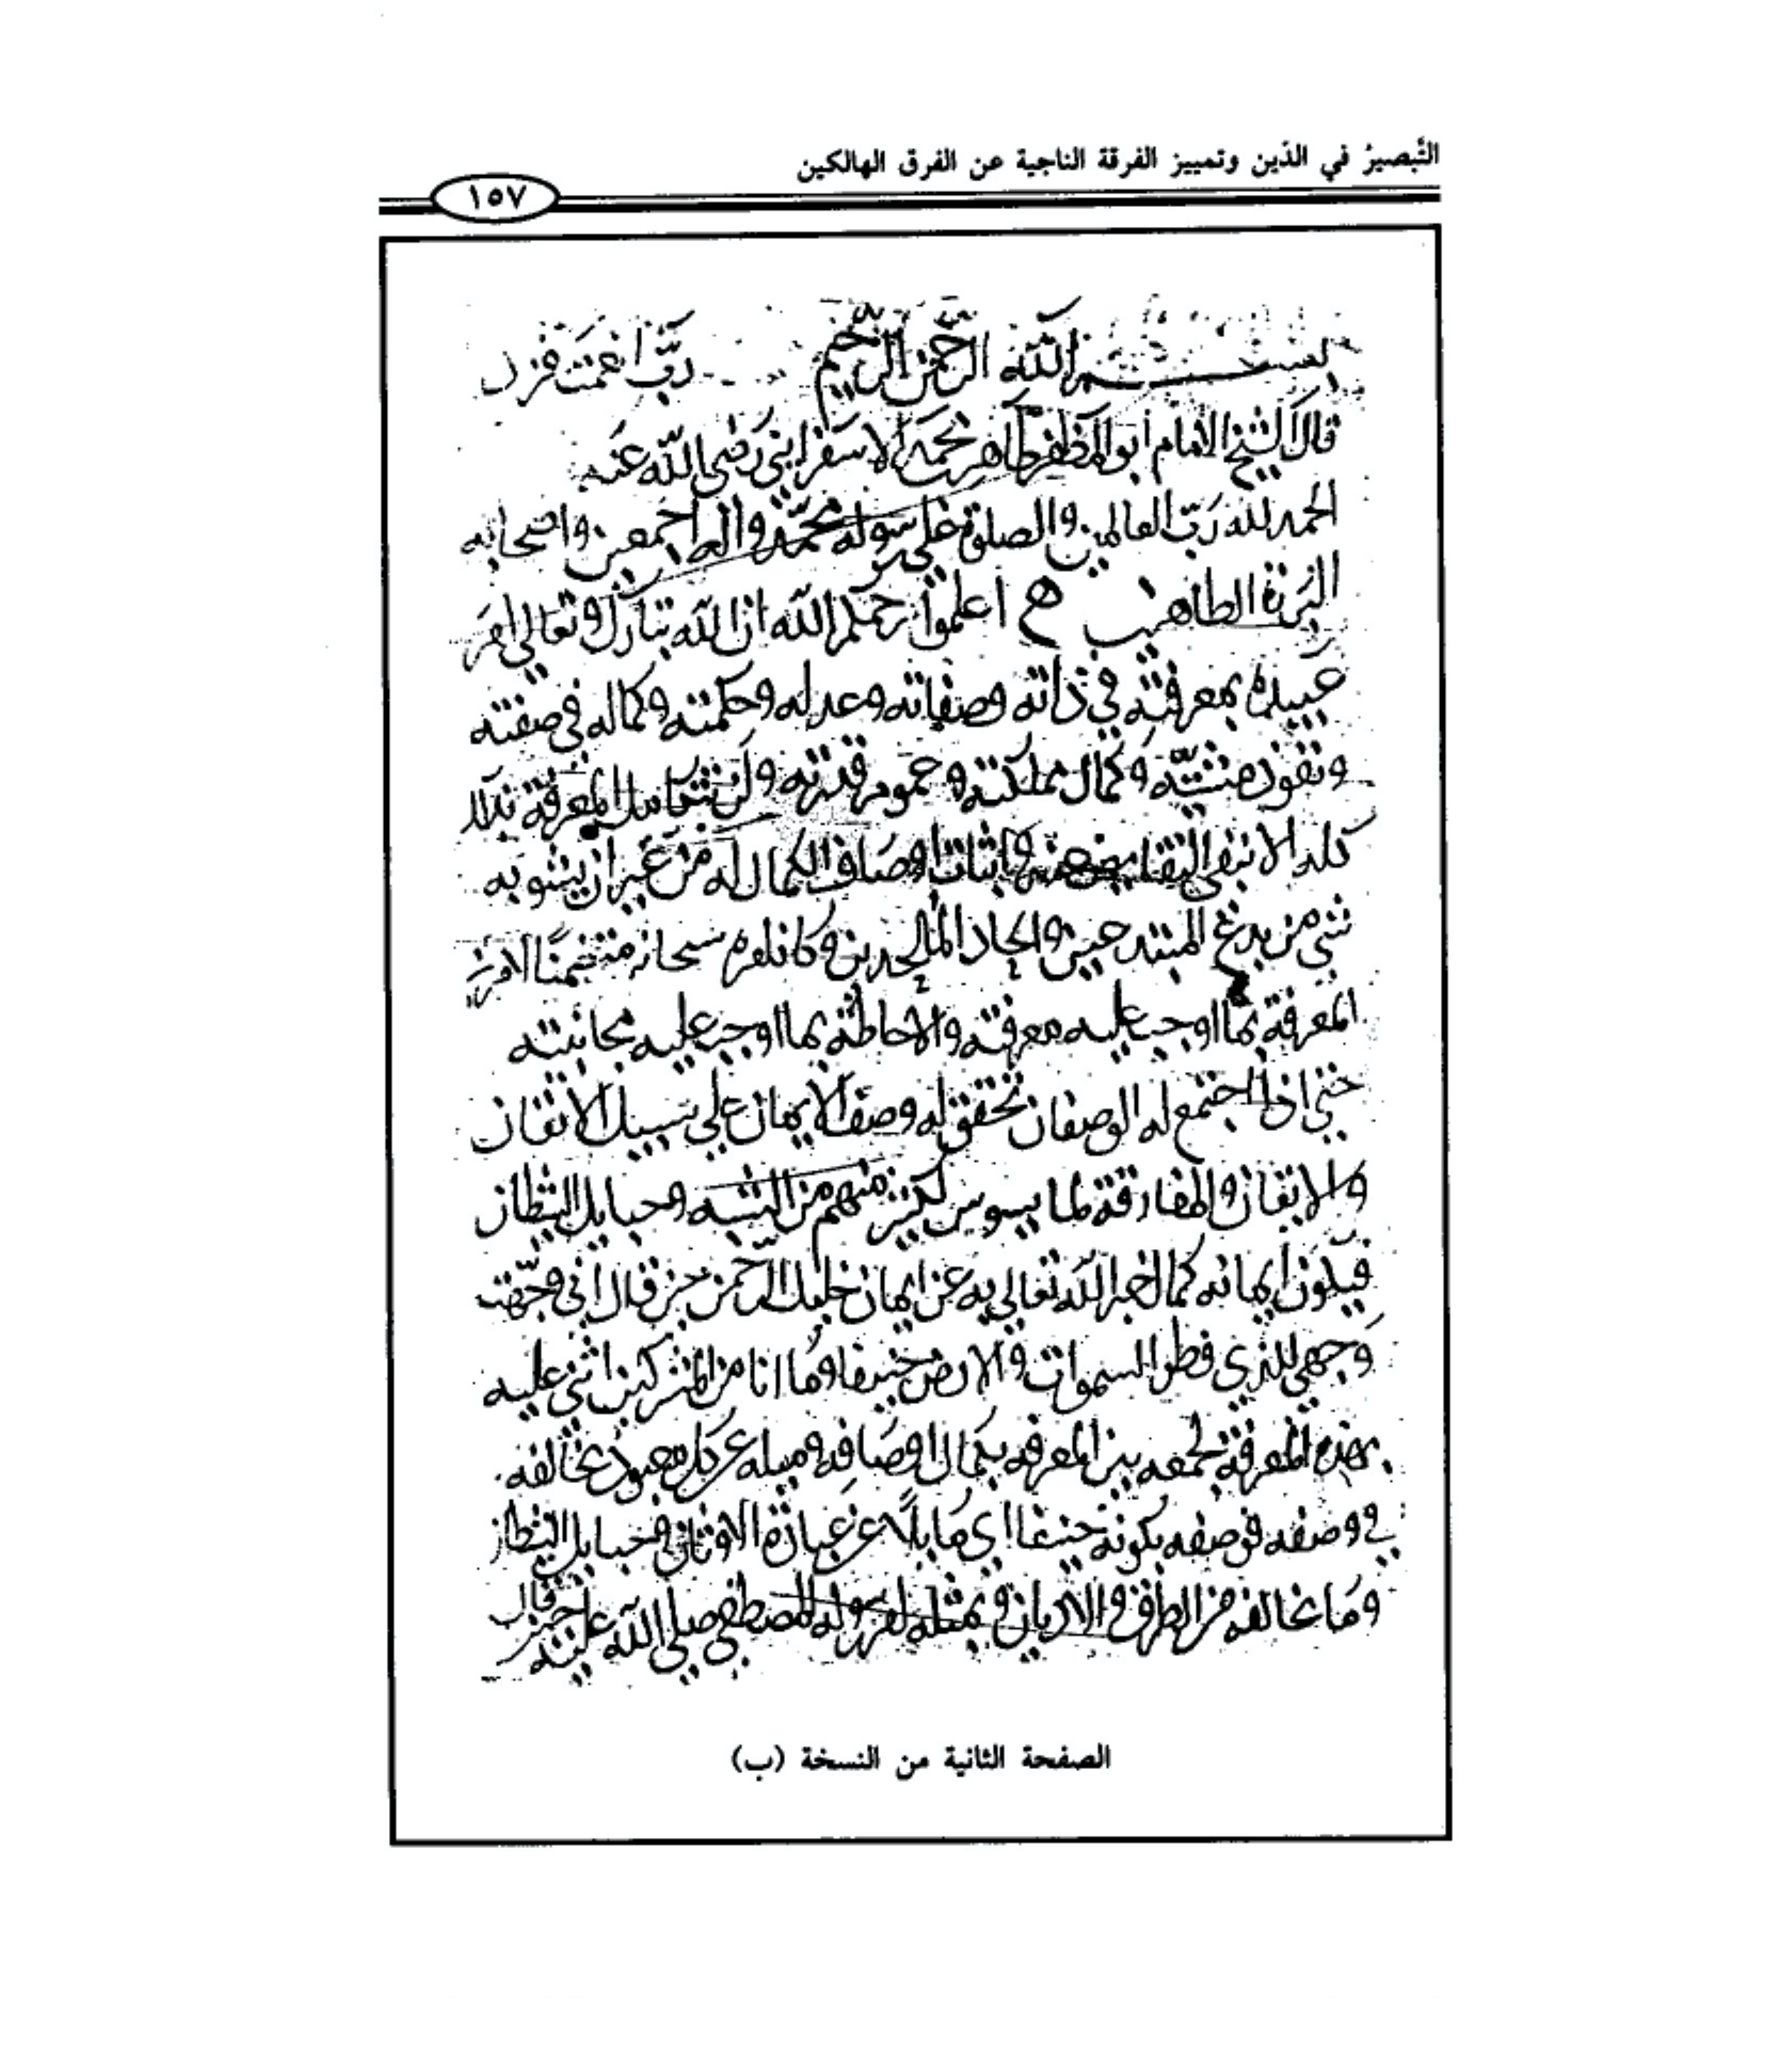 التَّبصيرُ في الدِّين وتمييز الفرقة الناجية عن الفرق الهالكين
١٥٧
بسم الله الرَّحمن الرَّحيم ربّ انعمت فزد
قال الشيخ الامام ابو المظفر طاهر بن محمد الاسفرايني رضى الله عنه
الحمد لله ربّ العالمين والصلوة على رسوله محمّد واله اجمعين واصحابه
البررة الطاهرين اعلموا رحمكم الله ان الله تبارك وتعالى امر
عبيده بمعرفته في ذاته وصفاته وعدله وحكمته وكماله في صفته
ونفوذ مشيّته وكمال مملكته وعموم قدرته ولن تتكامل المعرفة بذلك
كله الا بنفي النقايص عنه واثبات اوصاف الكمال له من غير ان يشوبه
شي من بدع المبتدعين والحاد الملحدين وكان امره سبحانه متضمنًا الامرين
المعرفة بما اوجب عليه معرفته والاحاطة بما اوجب عليه مجانبته
حتي اذا اجتمع له الوصفان تحقق له وصف الايمان علي سبيل الاتقان
والايقان والمفارقة لما يسوس لكثير منهم من الشبه وحبايل الشيطان
فيكون ايمانه كما اخبر الله تعالي به عن ايمان خليل الرّحمن حين قال اني وجّهت
وجهي للذي فطر السموات والارض حنيفا وما انا من المشركين اثني عليه
بهذه المعرفة لجمعه بين المعرفه بكمال اوصافه وميله عن كل معبود يخالفه
في وصفه فوصفه بكونه حنيفا اي مايلًا عن عبادة الاوثان وحبايل الشيطان
وما يخالفه من الطرق والاديان وبمثله امر رسوله المصطفي صلي الله عليه حين قال
الصفحة الثانية من النسخة (ب)